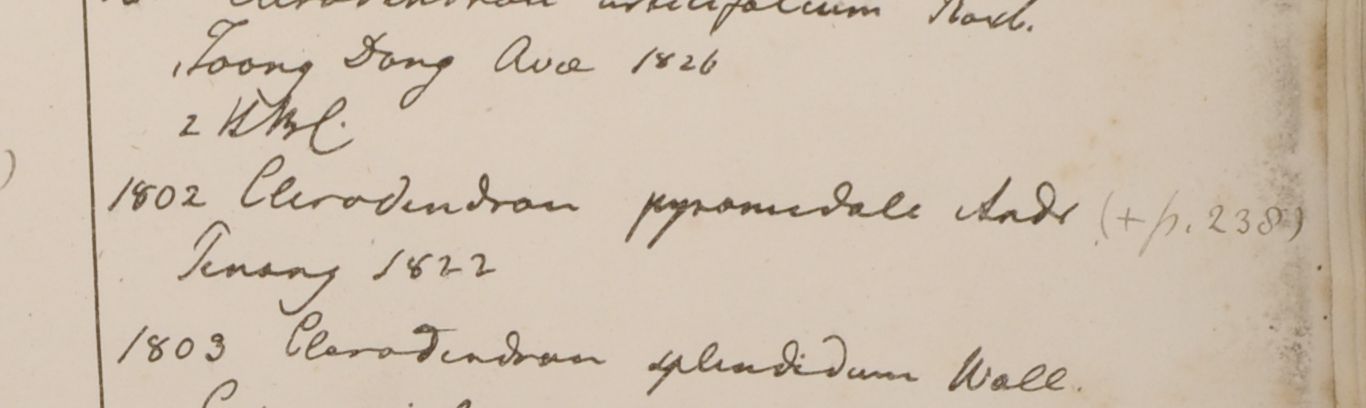 Clerodendron urticifolium Roxb.
Toong Dong Ava 1826
2 HBC.
1802 Clerodendron pyramidale Andr (+p. 238)
Penang 1822
1803 Clerodendron splendidum Wall.